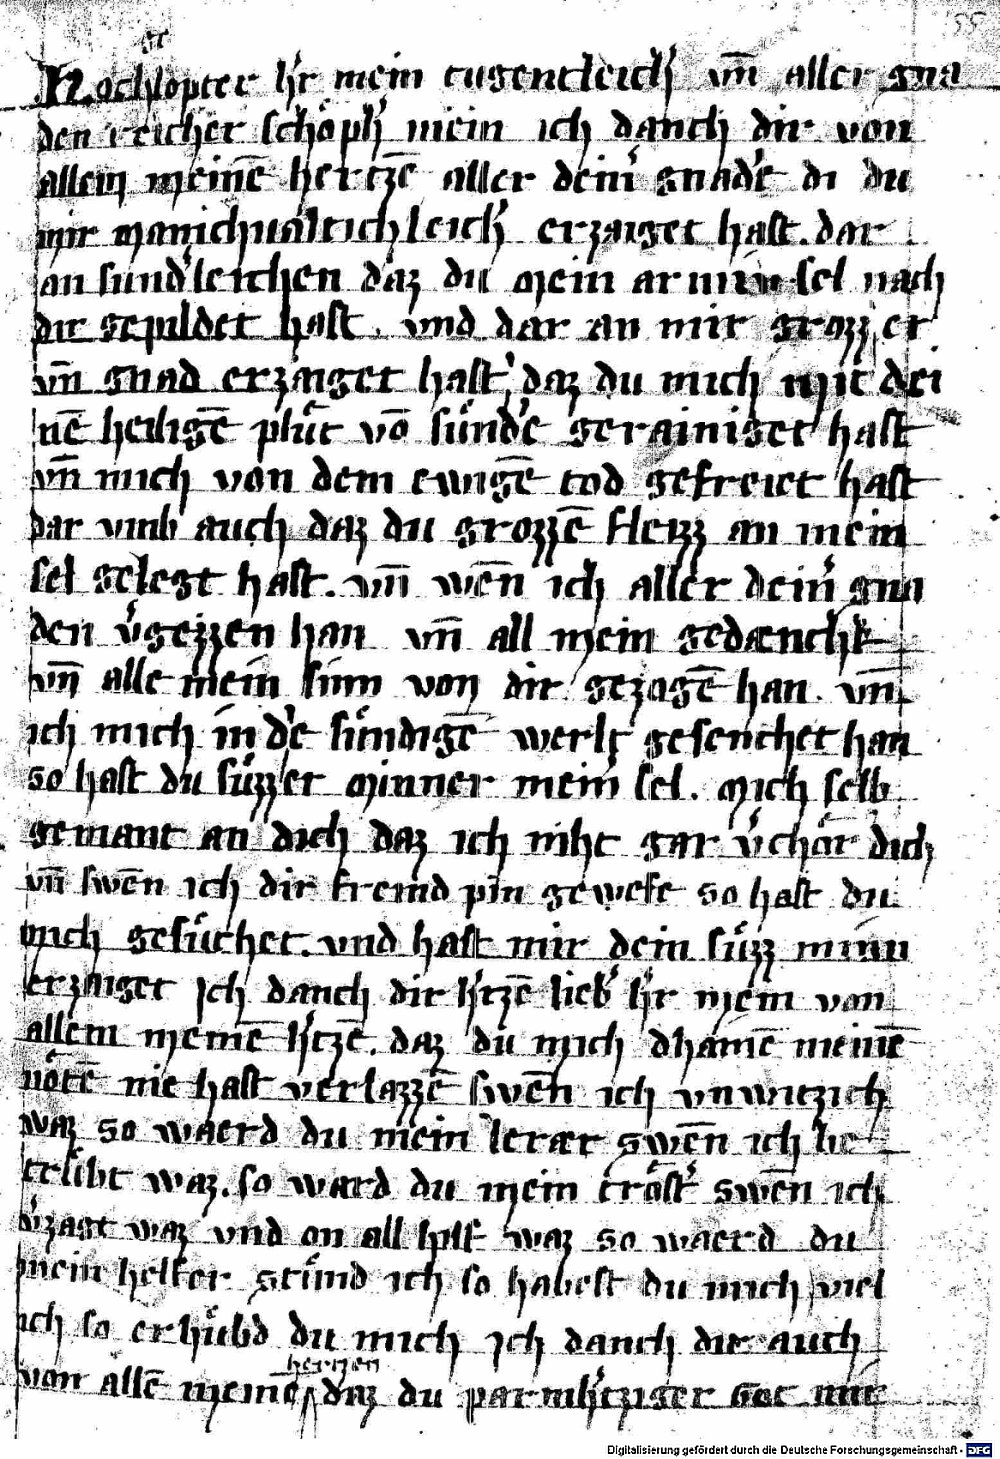 55
st
Hochlopter h'r mein tugentleich' vn̄ aller gna
den reicher schöph' mein ich danch dir von
allem meinē hertzē aller dein' gnad'ē di du
mir manichualtichleich' erzaiget hast. dar
an sund'leichen daz du mein armew sel nach
dir gepildet hast. vnd dar an mir grozz er
vn̄ gnad erzaiget hast, daz du mich mit dei
nē heiligē plůt vō sůnd'ē gerainiget hast
vn̄ mich von dem ewigē tod gefreiet hast
dar vmb auch daz du grozzē fleizz an mein
sel gelegt hast. vn̄ wēn ich aller dein' gna
den v'gezzen han vn̄ all mein gedænchk
vn̄ alle mein sinn von dir gezogē han. vn̄
ich mich in d'e sůndigē werlt gesenchet han
so hast du sůzzer minner mein' sel. mich selb
gemant an dich daz ich niht gar v'chör dich
vn̄ swēn ich dir fremd pin gewese so hast du
mich gesůchet. vnd hast mir dein sůzz minn
erzaiget Ich danch dir h'tzē lieb' h'r mein von
allem meinē h'tzē. daz du mich dhainē meinē
nötē nie hast verlazzē swēn ich vnwitzich
waz so waerd du mein lerær swēn ich be
trůbt waz. so ward du mein tröst' swēn ich
v'zagt waz vnd on all hilf waz so waerd du
mein helfer stůnd ich so habest du mich viel
ich so erhůbd du mich Ich danch dir auch
von allē meinē hertzen daz du parmh'tziger Got mir
Digitalisierung gefördert durch die Deutsche Forschungsgemeinschaft - DFG